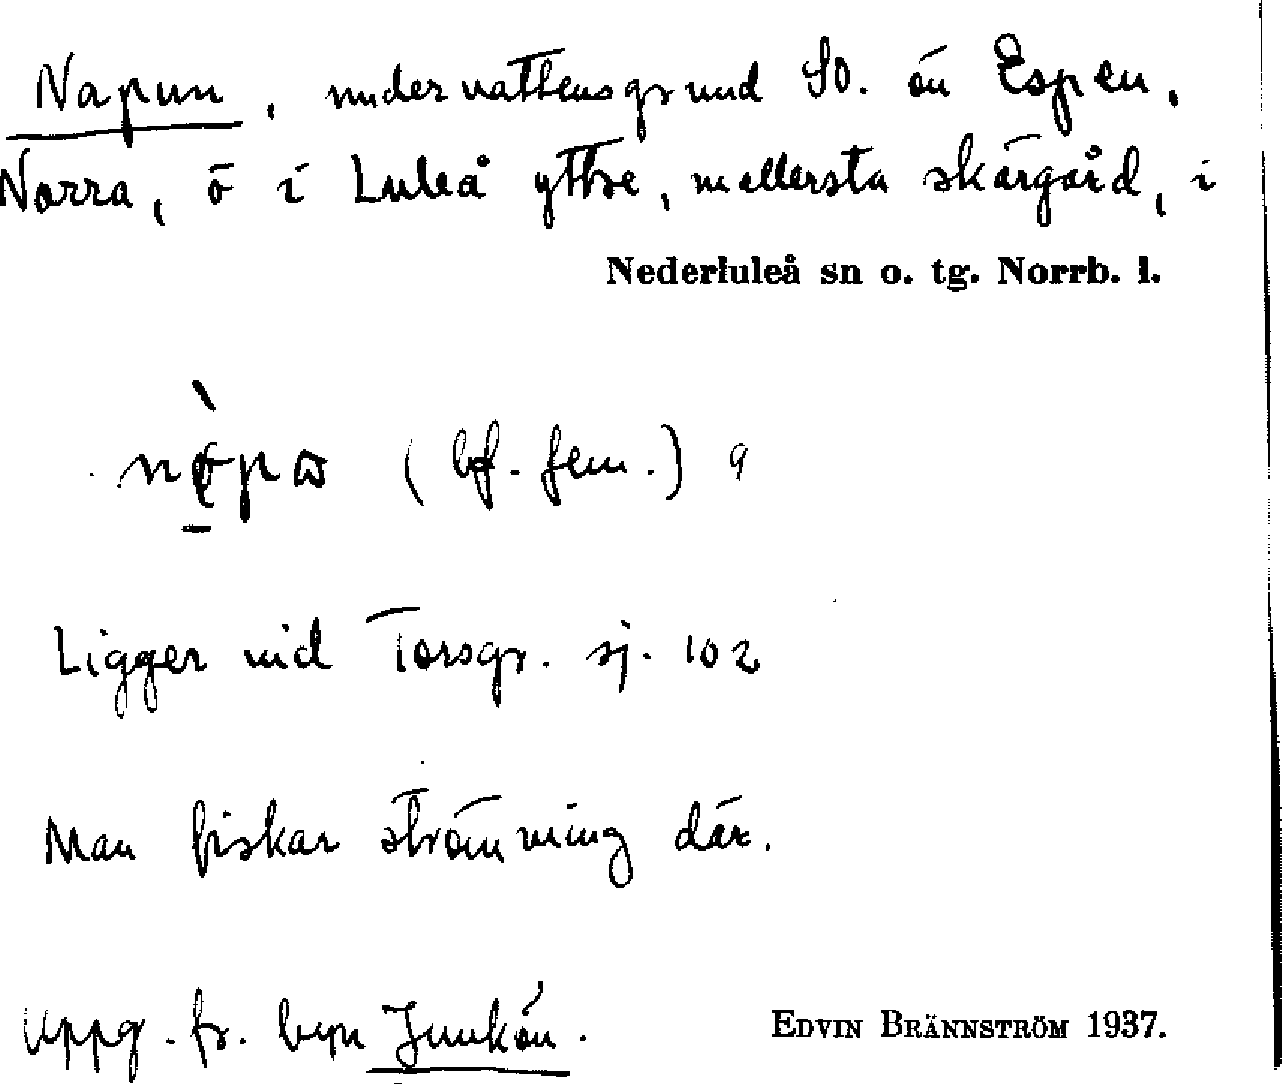 Napun, undervattensgrund SO. ön Espen,
Norra, ö i Luleå yttre, mellersta skärgård, i
Nederluleå sn o. tg. Norrb. l.
(bf. fem.)
Ligger vid Torsgr. sj. 102
Man fiskar strömming där.
Uppg. fr. byn Junkön.
EDVIN BRÄNNSTRÖM 1937.